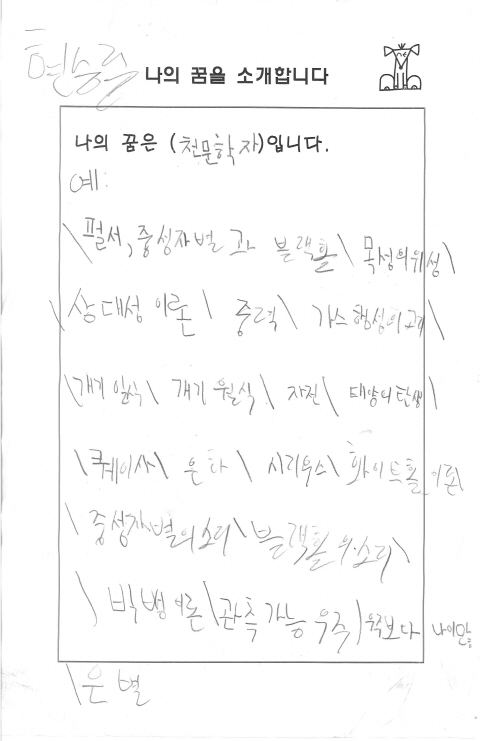 현승률
나의 꿈을 소개합니다
나의 꿈은 (천문학자)입니다.
예:
\펄서, 중성자별과 블랙홀\ 목성의위성\
\상대성 이론\ 중력\ 가스행성의고리\
\개기 일식\ 개기 월식\ 자전\ 태양의탄생\
\퀘이사\ 은하\ 시리우스\ 화이트홀 이론\
\중성자별의소리\블랙홀의소리\
\ 빅뱅이론\관측 가능 우주\우주보다 나이많
\은 별